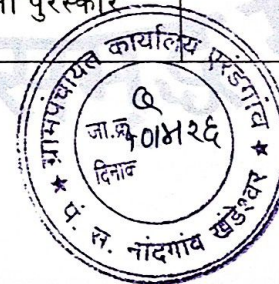 पुरस्कार
ग्रामपंचायत कार्यालय एरंडगांव
जा.क्र.
दिनांक
★ पं. स. नांदगांव खंडेश्वर ★